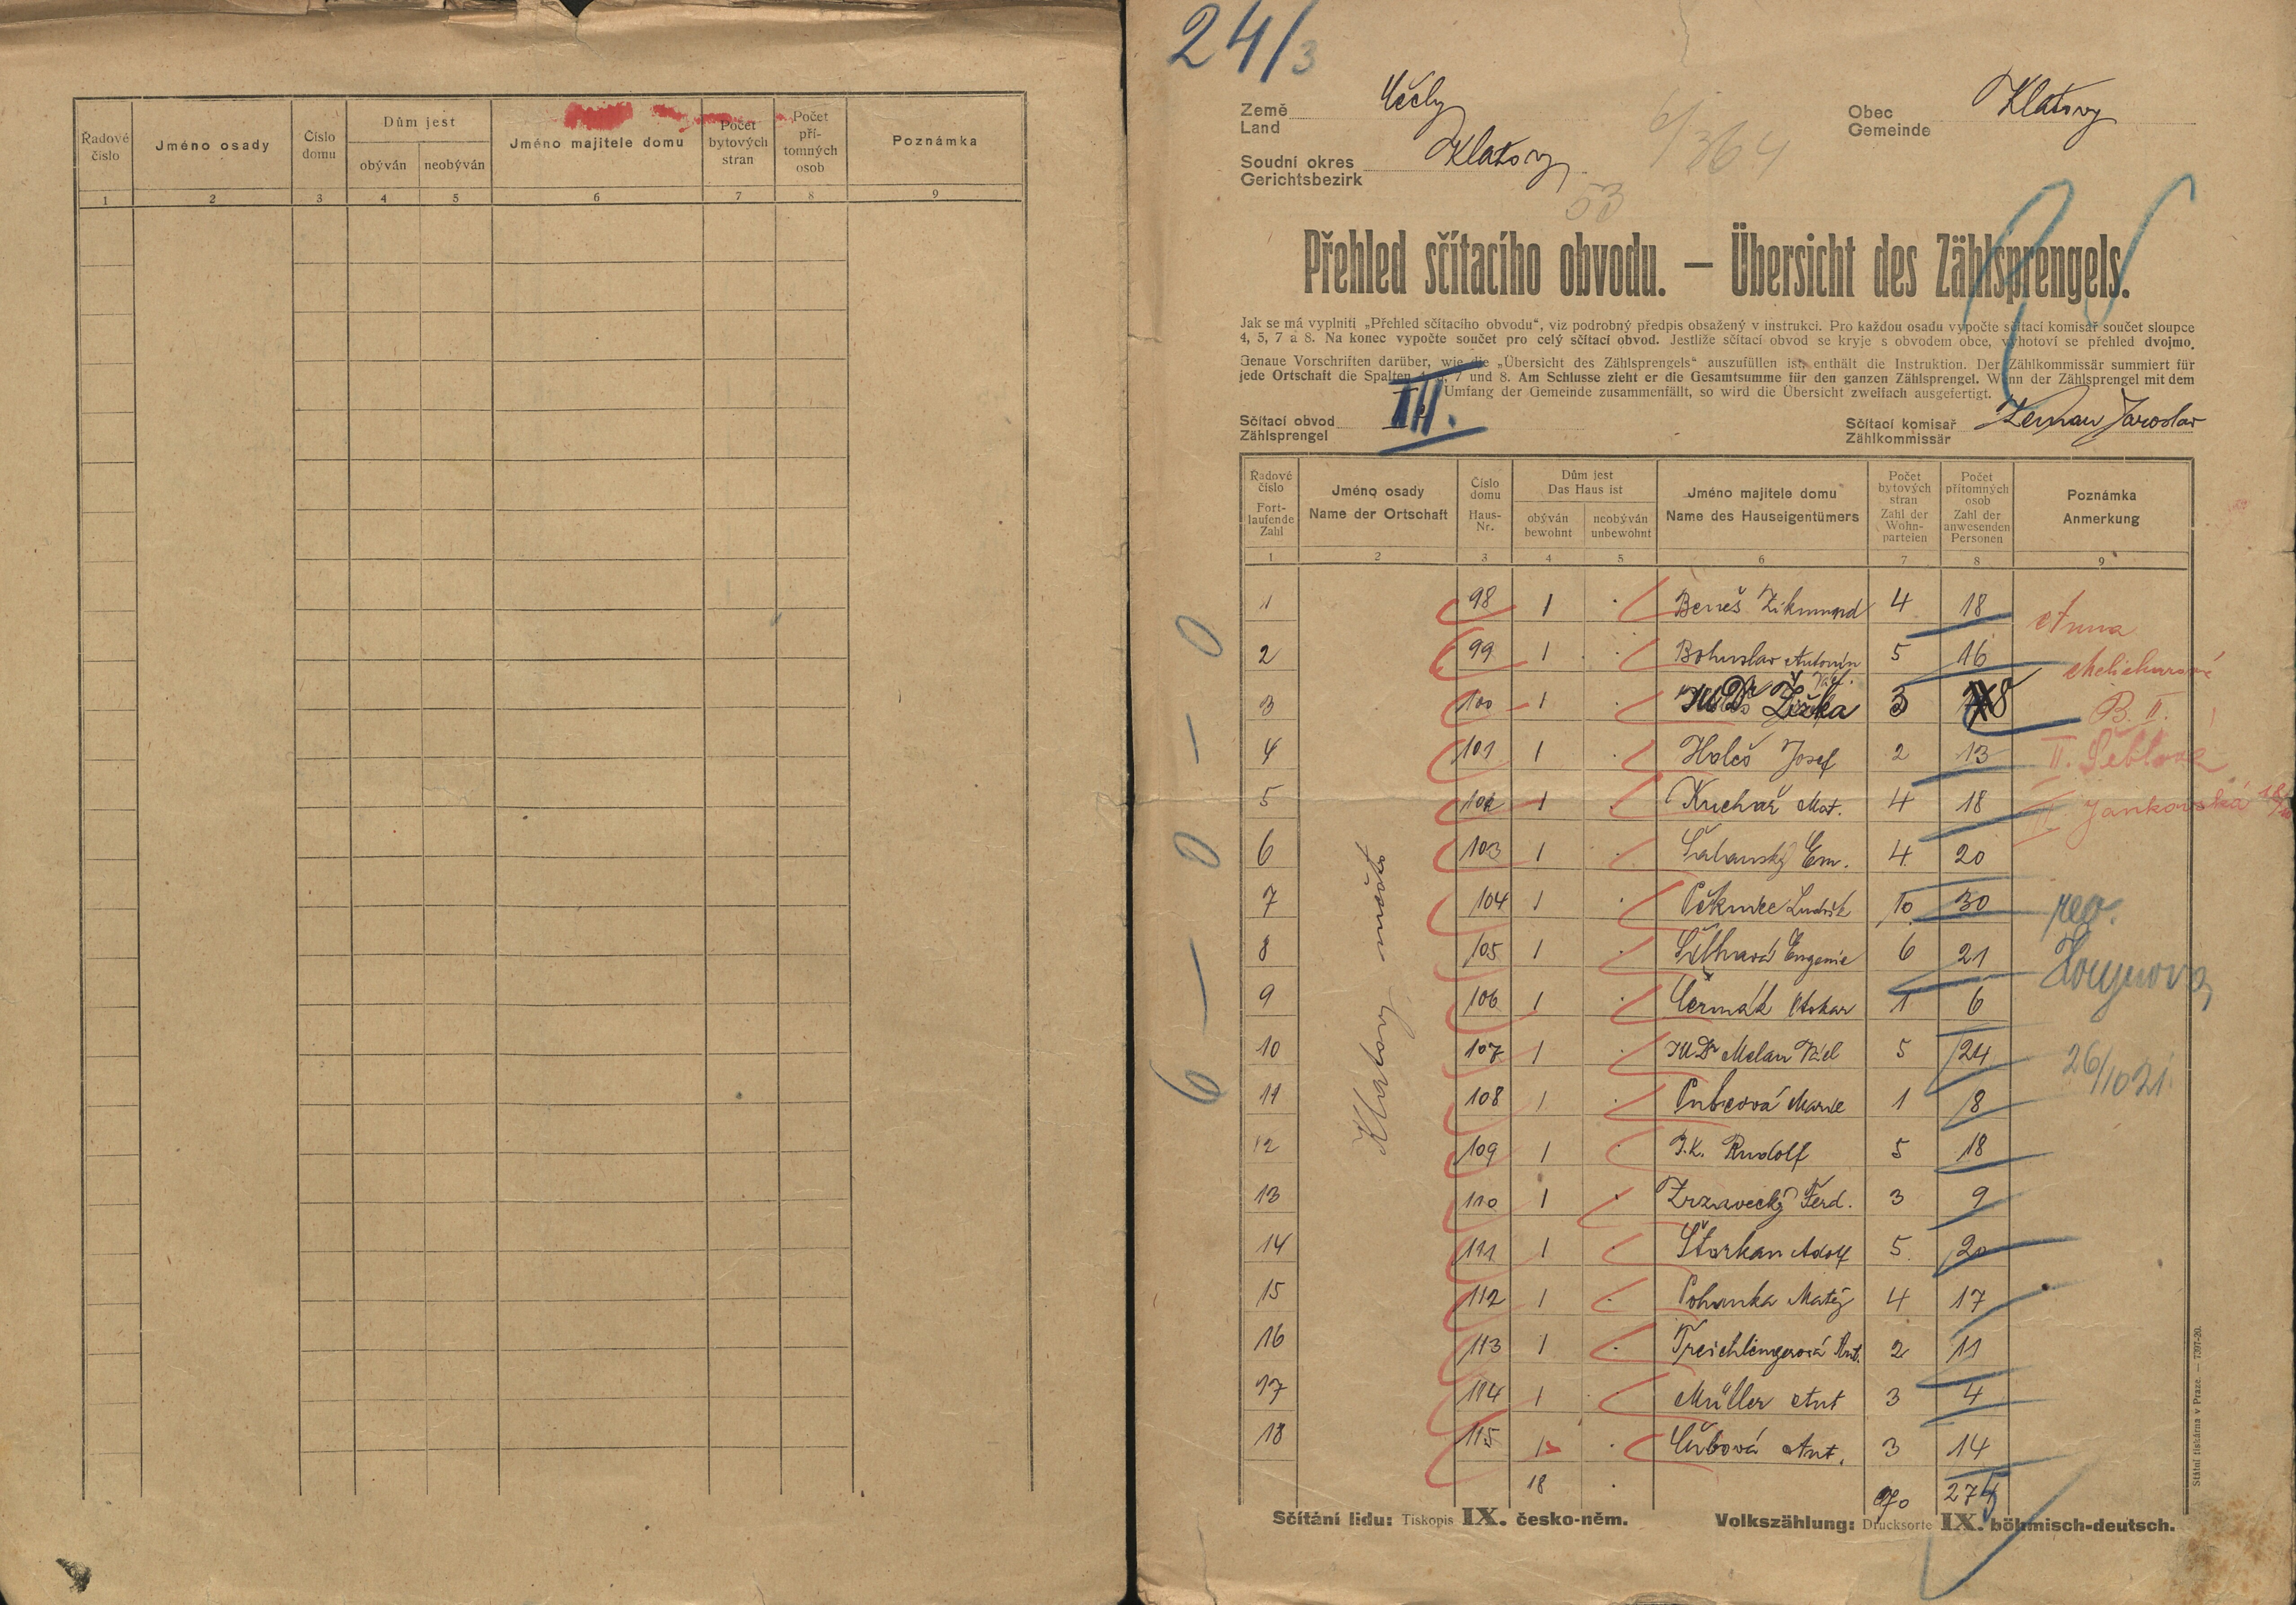 Řadové číslo
Jméno osady
Číslo domu
Dům jest
obýván
neobýván
Jméno majitele domu
Počet bytových stran
Počet pří-tomných osob
Poznámka
1 2 3 4 5 6 7 8 9
24/3
Země Čechy
Land
Obec Klatovy
Gemeinde
Soudní okres Klatovy
Gerichtsbezirk
6/364
53
Přehled sčítacího obvodu. — Übersicht des Zählsprengels.
Jak se má vyplniti „Přehled sčítacího obvodu“, viz podrobný předpis obsažený v instrukci. Pro každou osadu vypočte sčítací komisař součet sloupce
4, 5, 7 a 8. Na konec vypočte součet pro celý sčítací obvod. Jestliže sčítací obvod se kryje s obvodem obce, vyhotoví se přehled dvojmo.
Genaue Vorschriften darüber, wie die „Übersicht des Zählsprengels“ auszufüllen ist, enthält die Instruktion. Der Zählkommissär summiert für
jede Ortschaft die Spalten 4, 5, 7 und 8. Am Schlusse zieht er die Gesamtsumme für den ganzen Zählsprengel. Wenn der Zählsprengel mit dem
Umfang der Gemeinde zusammenfällt, so wird die Übersicht zweifach ausgefertigt.
Sčítací obvod III.
Zählsprengel
Sčítací komisař Zeman Jaroslav
Zählkommissär
Řadové číslo
Fort-laufende Zahl
Jméno osady
Name der Ortschaft
Číslo domu
Haus-Nr.
Dům jest
Das Haus ist
obýván bewohnt
neobýván unbewohnt
Jméno majitele domu
Name des Hauseigentümers
Počet bytových stran
Zahl der Wohn-parteien
Počet přítomných osob
Zahl der anwesenden Personen
Poznámka
Anmerkung
1 2 3 4 5 6 7 8 9
Klatovy město
1 98 1 . Beneš Zikmund 4 18
2 99 1 . Bohuslav Antonín 5 16
3 100 1 . MUDr Žižka Václ. 3 8
4 101 1 . Holeš Josef 2 13
5 102 1 . Kuchař Mat. 4 18
6 103 1 . Šalanský Em. 4 20
7 104 1 . Ludvík 10 30
8 105 1 . Šilhavá Eugenie 6 21
9 106 1 . Čermák Otokar 1 6
10 107 1 . MUDr Melan 5 24
11 108 1 . Marie 1 8
12 109 1 . Rudolf 5 18
13 110 1 . Zrzavecký Ferd. 3 9
14 111 1 . Štorkan Adolf 5 20
15 112 1 . Pohanka Matěj 4 17
16 113 1 . Treichlingerová Ant. 2 11
17 114 1 . Müller Ant 3 4
18 115 1 . Ant. 3 14
18 . 70 275
Anna
Melicharová
B. II.
II. Šeblová
II Jankovská
rev.
26/10 21
6 — 0 — 0
Sčítání lidu: Tiskopis IX. česko-něm.
Volkszählung: Drucksorte IX. böhmisch-deutsch.
Státní tiskárna v Praze. — 7397-20.